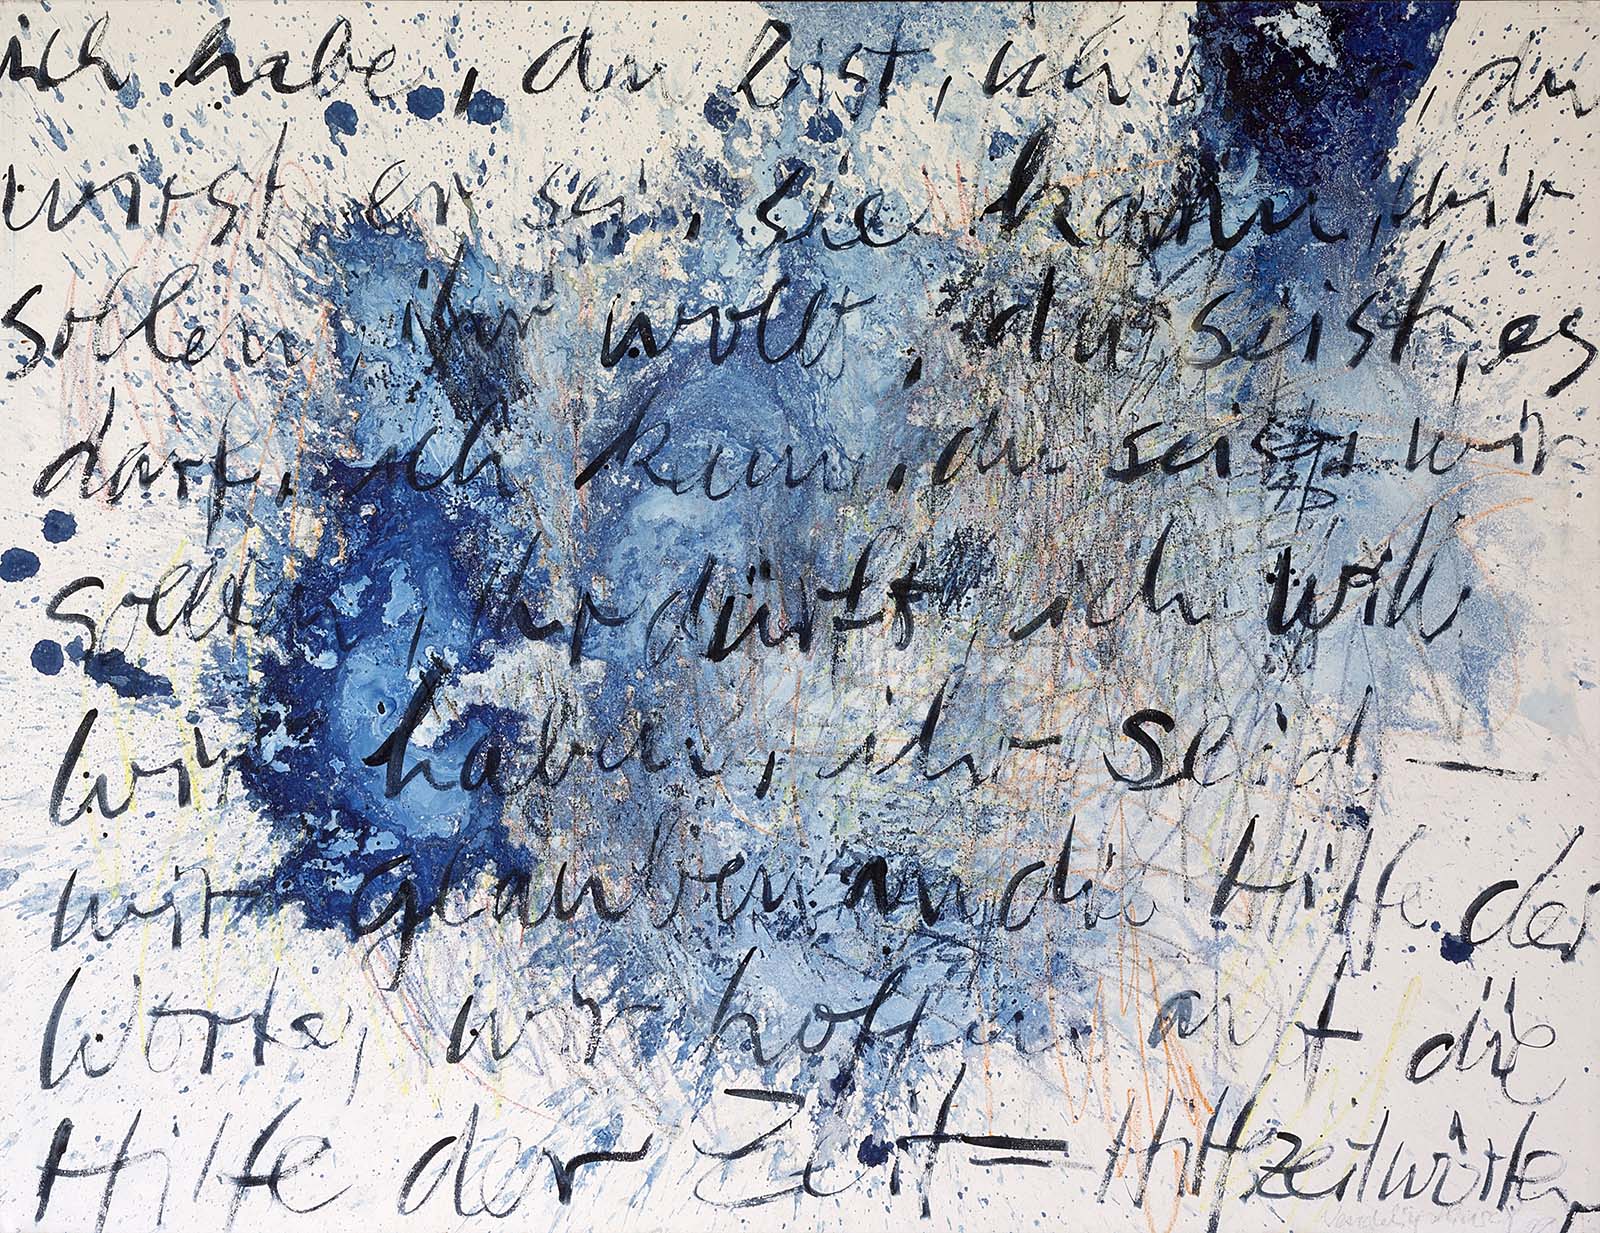 ich habe, du bist, ich, du
wirst, er sei, sie kann, wir
sollen, ihr wollt, du seist, es
darf, ich kann, du seist, wir
sollen, ihr dürft, ich will
wir haben, ihr seid –
wir glauben an die Hilfe der
Worte, wir hoffen auf die
Hilfe der Zeit = Hilfszeitwörter